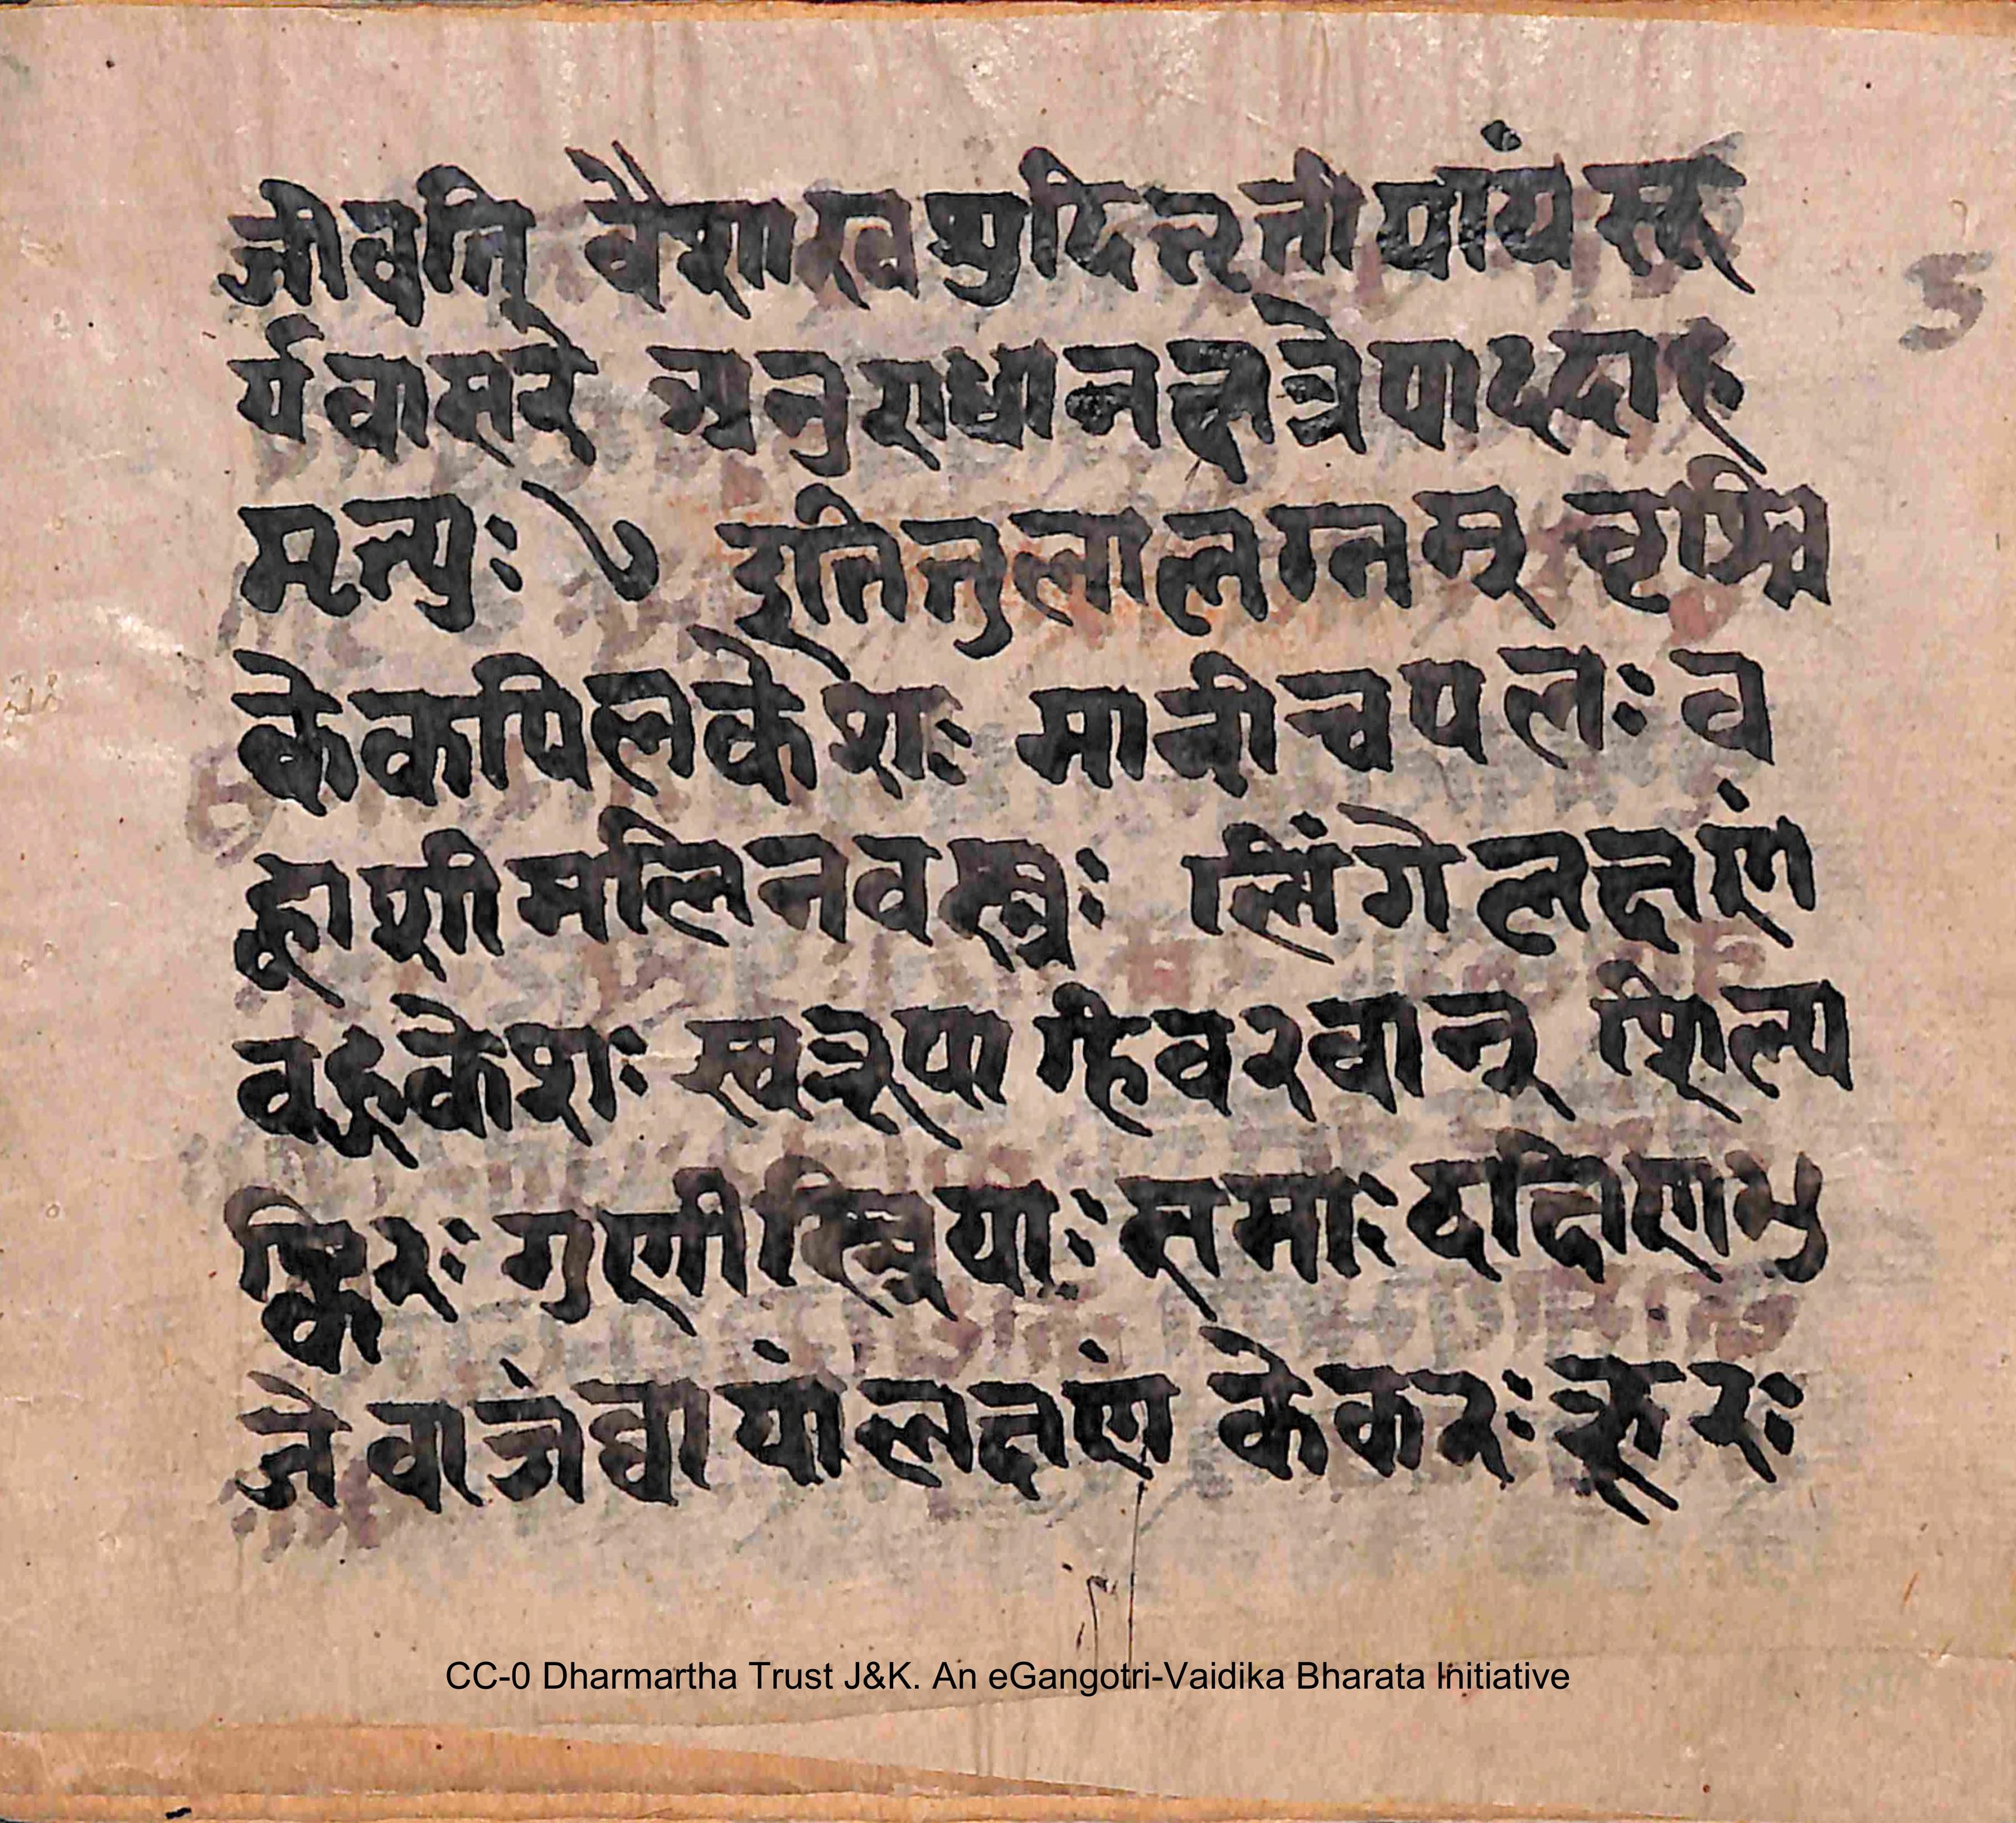 जीवति वैशाख शुदि तृतीयायां सू
र्यवासरे अनुराधानक्षत्रे पाददाह
मृत्युः ७ इति तुलालग्नम् वृश्चि
के कपिलकेशः मानी चपलः व
ह्वाशी मलिनवस्त्रः लिंगे लक्षणं
वहुकेशः स्वरूपा ग्हिवरवान् शिल्प
किरः गुणी स्त्रियाः समाः दक्षिणभु
जे वा जंघायां लक्षणं केकरः क्रूरः
5
CC-0 Dharmartha Trust J&K. An eGangotri-Vaidika Bharata Initiative